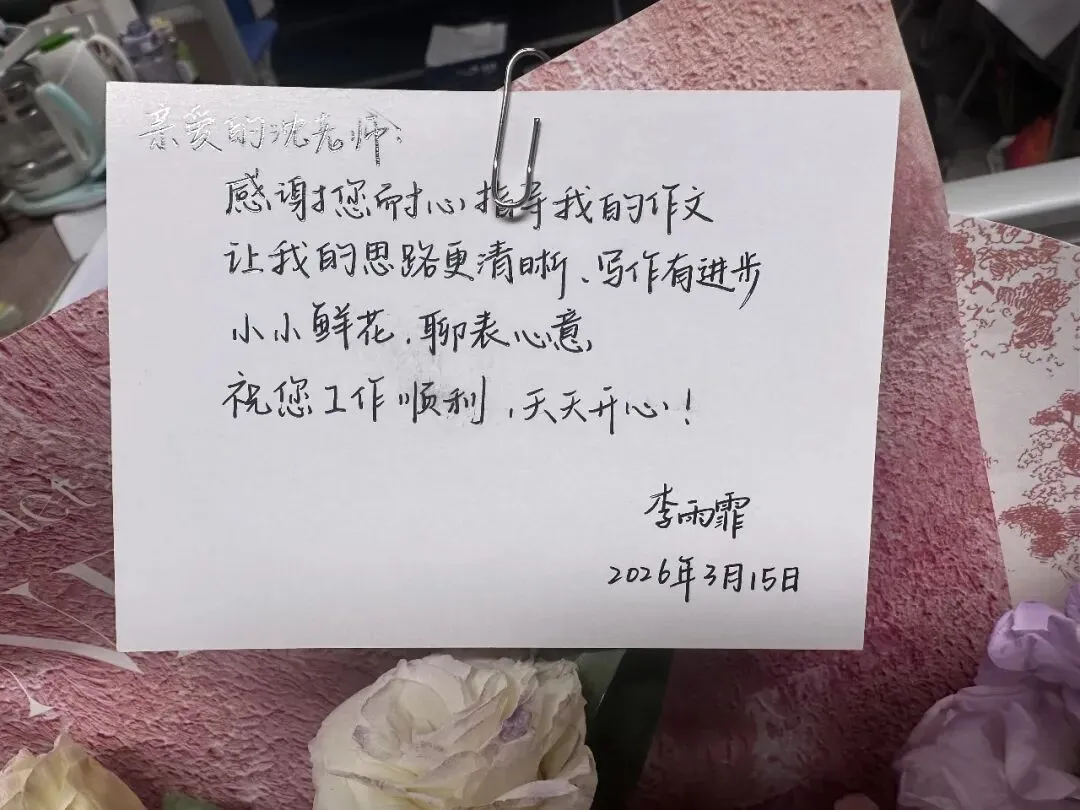 亲爱的沈老师：
感谢您耐心指导我的作文
让我的思路更清晰、写作有进步
小小鲜花，聊表心意，
祝您工作顺利，天天开心！
李雨霏
2026年3月15日
let